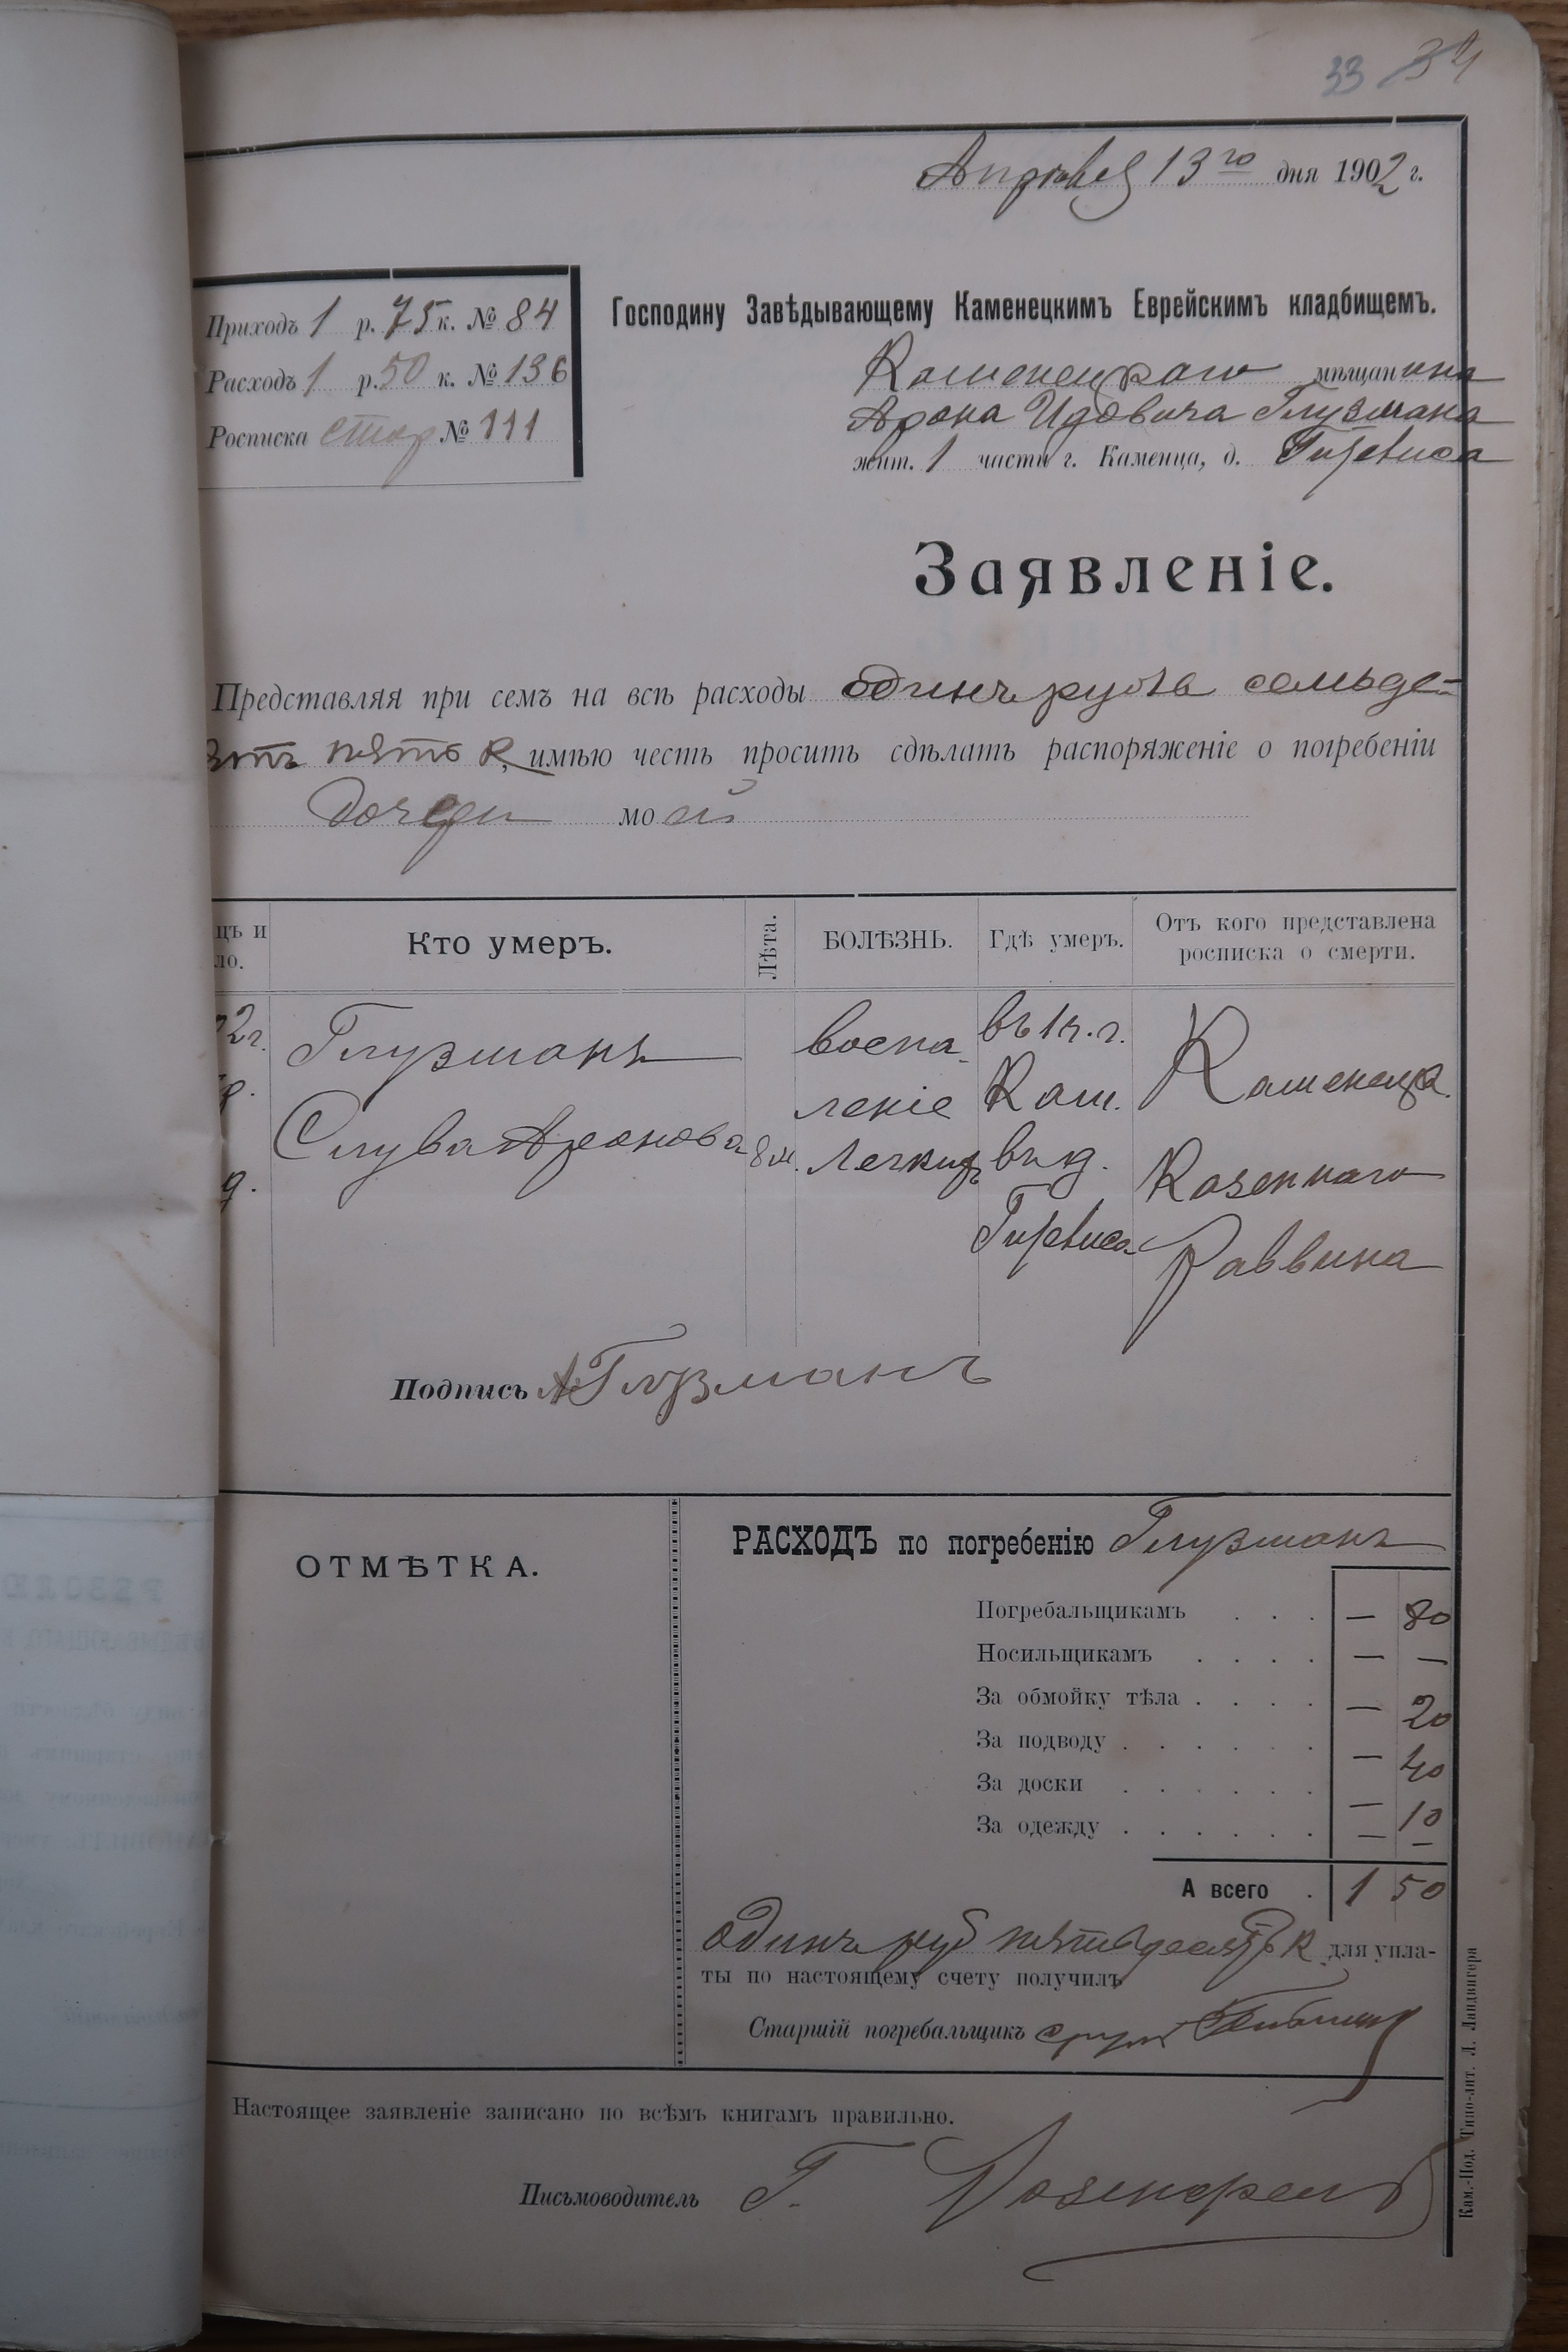 33 34
Апрѣля 13го дня 1902 г.
Приходъ 1 р. 75 к. № 84
Расходъ 1 р. 50 к. № 136
Росписка стар № 111
Господину Завѣдывающему Каменецкимъ Еврейскимъ кладбищемъ.
Каменецкаго мѣщанина
Арона Идовича Глузмана
жит. 1 части г. Каменца, д.
Заявленіе.
Представляя при семъ на всѣ расходы одинъ рубль семьде-
сятъ пять к, имѣю честь просить сдѣлать распоряженіе о погребеніи
дочери моей
цъ и
ло.
Кто умеръ.
Лѣта.
БОЛѢЗНЬ.
Гдѣ умеръ.
Отъ кого представлена
росписка о смерти.
2г.
р.
д.
Глузманъ
Слува Аронова
8 м.
воспа-
леніе
легкихъ
въ 1 ч. г.
Кам.
въ д.
Каменецк.
Казеннаго
Раввина
Подпись А Глузманъ
ОТМѢТКА.
РАСХОДЪ по погребенію Глузманъ
Погребальщикамъ . . . — 80
Носильщикамъ . . . . — —
За обмойку тѣла . . . . — 20
За подводу . . . . . . — 40
За доски . . . . . . — 10
За одежду . . . . . . — —
А всего . 1 50
Одинъ руб пятьдесятъ к для упла-
ты по настоящему счету получилъ
Старшій погребальщикъ
Настоящее заявленіе записано по всѣмъ книгамъ правильно.
Письмоводитель Г. Розенфельд
Кам.-Под. Типо-лит. Л. Ландвигера